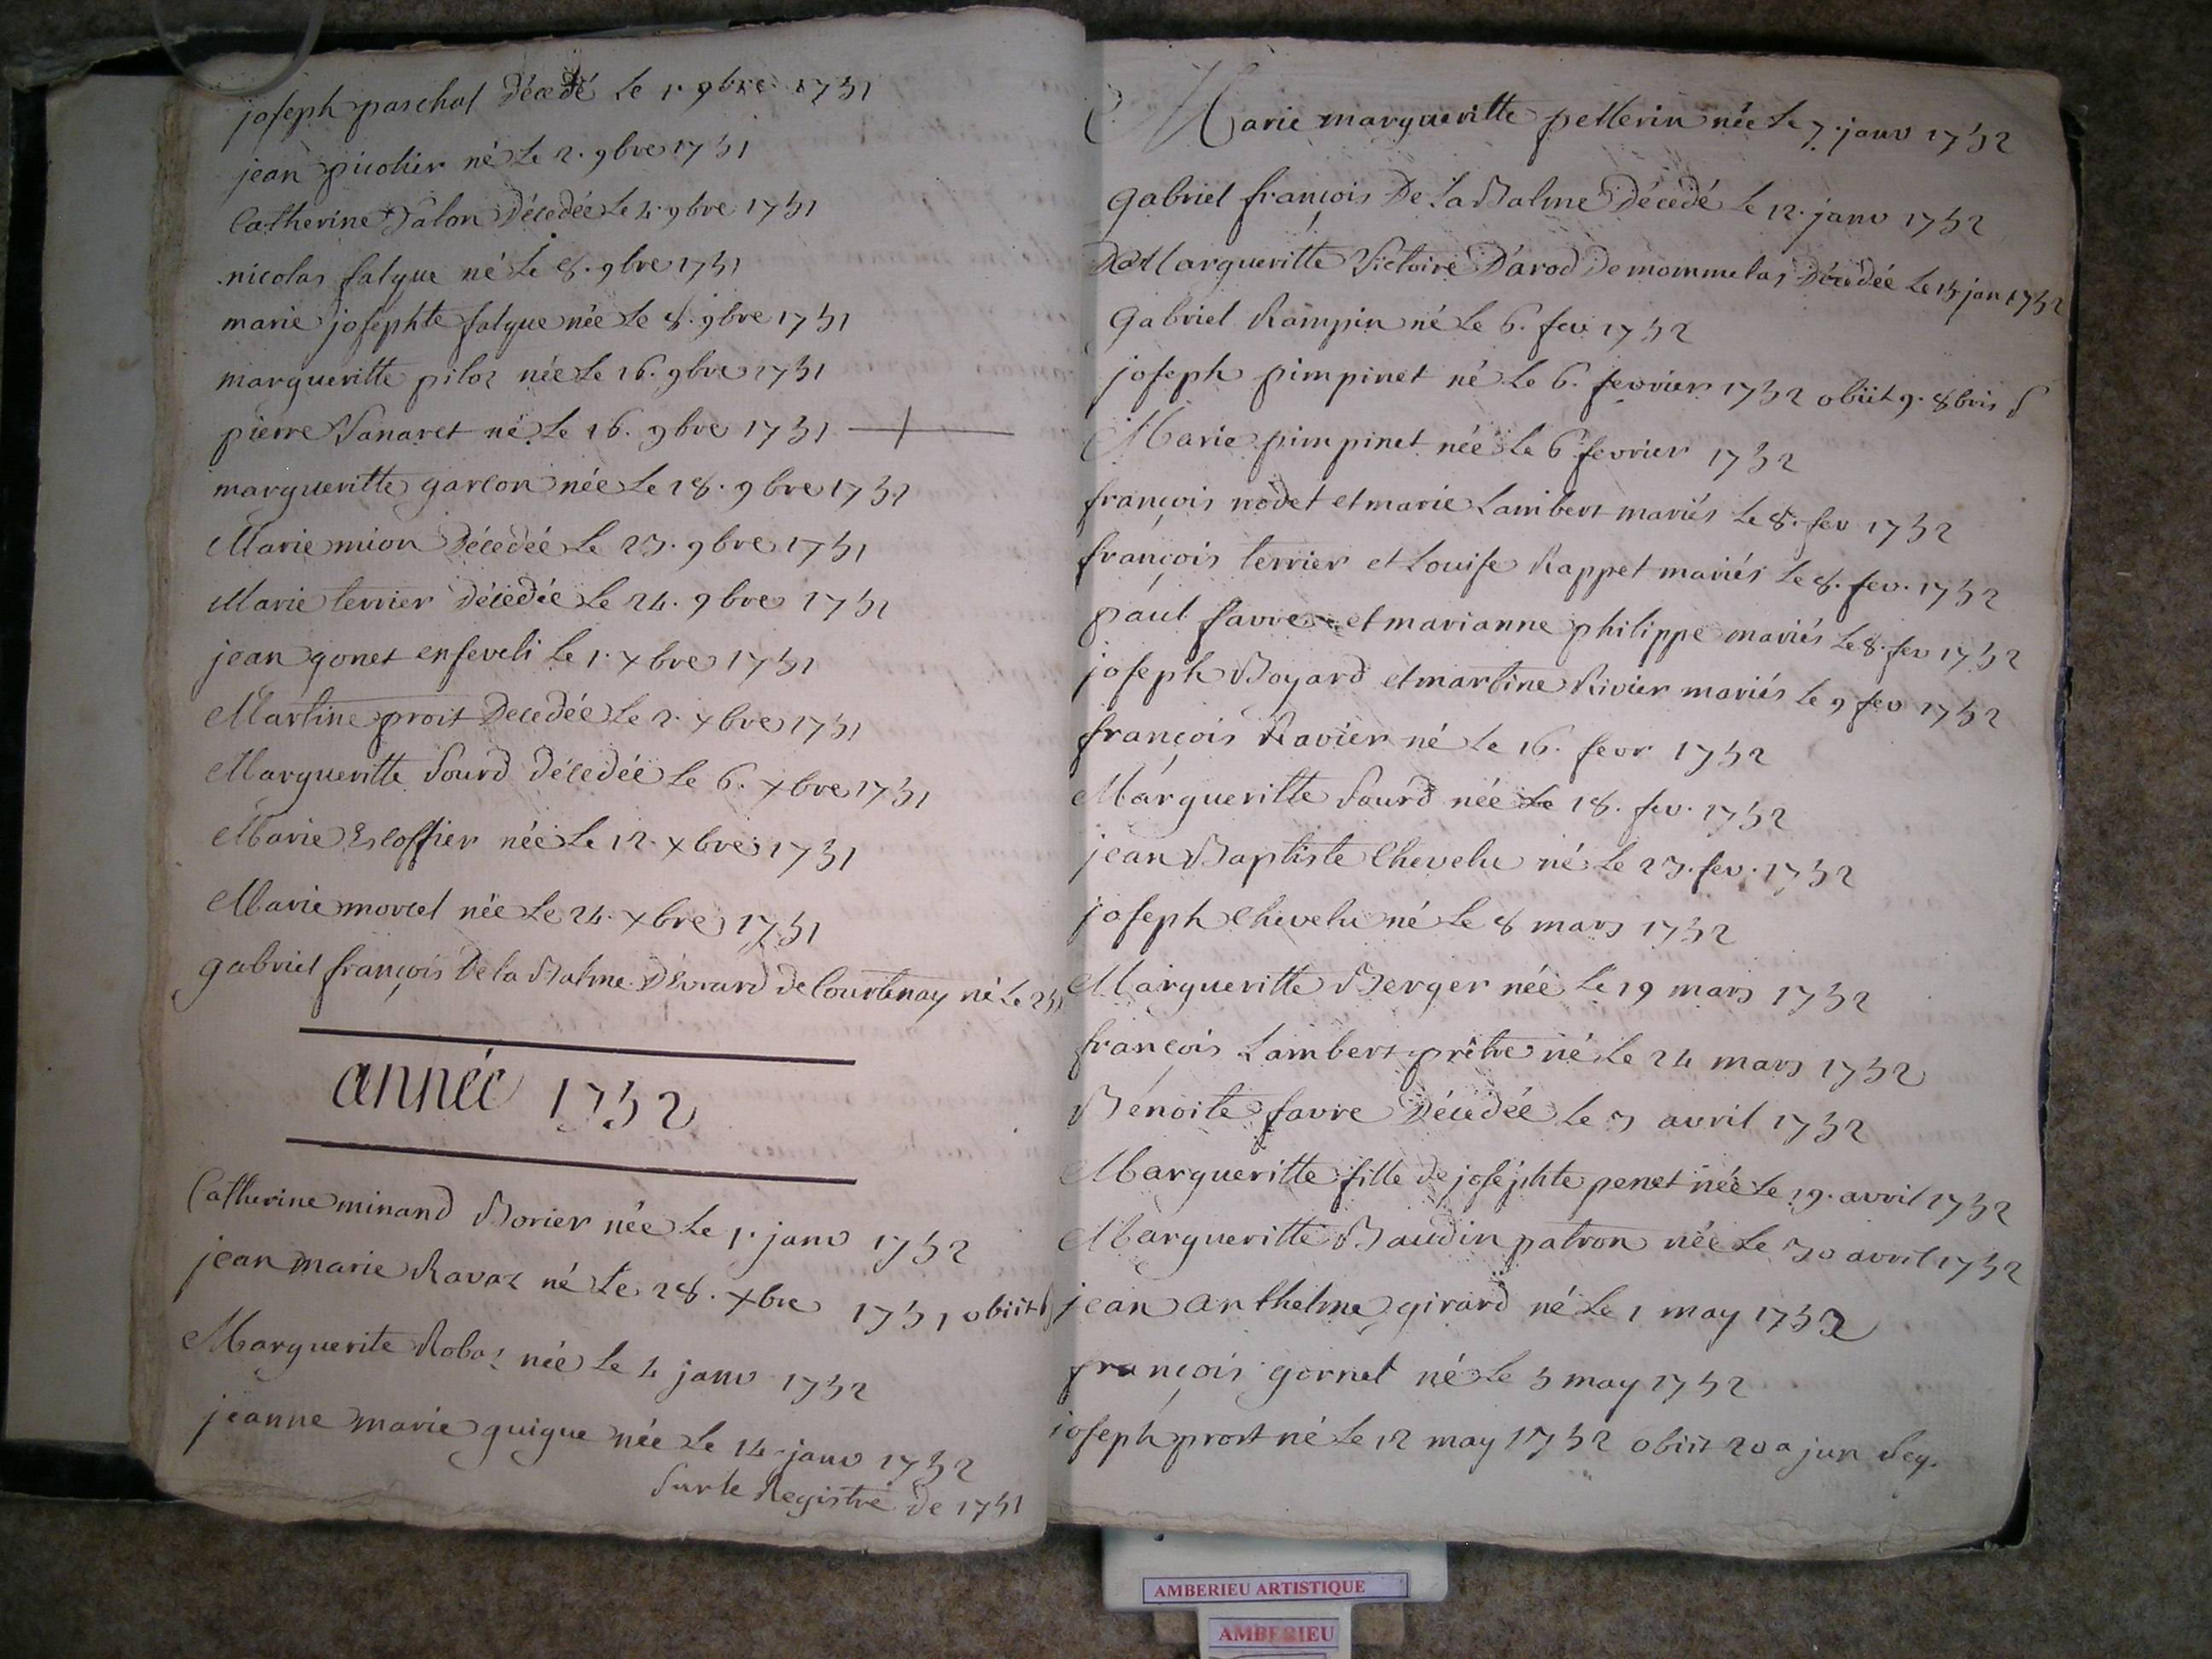 joseph paschal décédé le 1. 9bre 1751
jean picolier né le 2. 9bre 1751
Catherine Salon décedée le 4. 9bre 1751
nicolas falque né le 8. 9bre 1751
marie josephte falque née le 8. 9bre 1751
margueritte piloz née le 16. 9bre 1751
pierre Vanaret né le 16. 9bre 1751
margueritte garcon née le 18. 9bre 1751
Marie mion décedée le 23. 9bre 1751
Marie terrier décedée le 24. 9bre 1751
jean gonet enseveli le 1. xbre 1751
Martine proit decedée le 2. xbre 1751
Margueritte Sourd décedée le 6. xbre 1751
Marie Escoffier née le 12. xbre 1751
Marie morcel née le 24. xbre 1751
gabriel françois de la Balme d'Evrard de Courtenay né le
année 1752
Catherine minand Borier née le 1. janv 1752
jean marie Ravaz né le 28. xbre 1751 obiit
Marguerite Robaz née le 4 janv 1752
jeanne marie guigue née le 14 janv 1752
sur le Registre de 1751
Marie margueritte pellerin née le 7. janv 1752
gabriel françois De La Balme décedé le 12. janv 1752
Margueritte Victoire D'arod de mommelas décedée le 15 jan 1752
gabriel Rampin né le 6. fev. 1752
joseph pimpinet né le 6. fevrier 1752 obiit 9. 8bris
Marie pimpinet née le 6 fevrier 1752
françois nodet et marie Lambert mariés le 8. fev 1752
françois terrier et Louise Rappet mariés le 8. fev. 1752
paul favre et marianne philippe mariés le 8. fev 1752
joseph Boyard et martine Rivier mariés le 9 fev 1752
françois Ravier né le 16. fevr 1752
Margueritte Sourd née le 18. fev. 1752
jean Baptiste Chevelu né le 23. fev. 1752
joseph Chevelu né le 8 mars 1752
Margueritte Berger née le 19 mars 1752
françois Lambert prêtre né le 24 mars 1752
Benoite favre décedée le 3 avril 1752
Margueritte fille de joséphte penet née le 19. avril 1752
Margueritte Baudin patron née le 30 avril 1752
jean anthelme girard né le 1 may 1752
françois gornet né le 5 may 1752
joseph prost né le 12 may 1752 obiit 20a jun seq.
AMBERIEU ARTISTIQUE
AMBERIEU